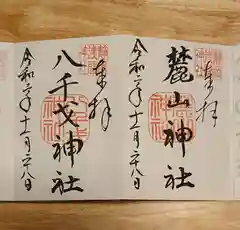 奉拝
麓山神社
令和二年十一月二十八日
奉拝
八千戈神社
令和二年十一月二十八日